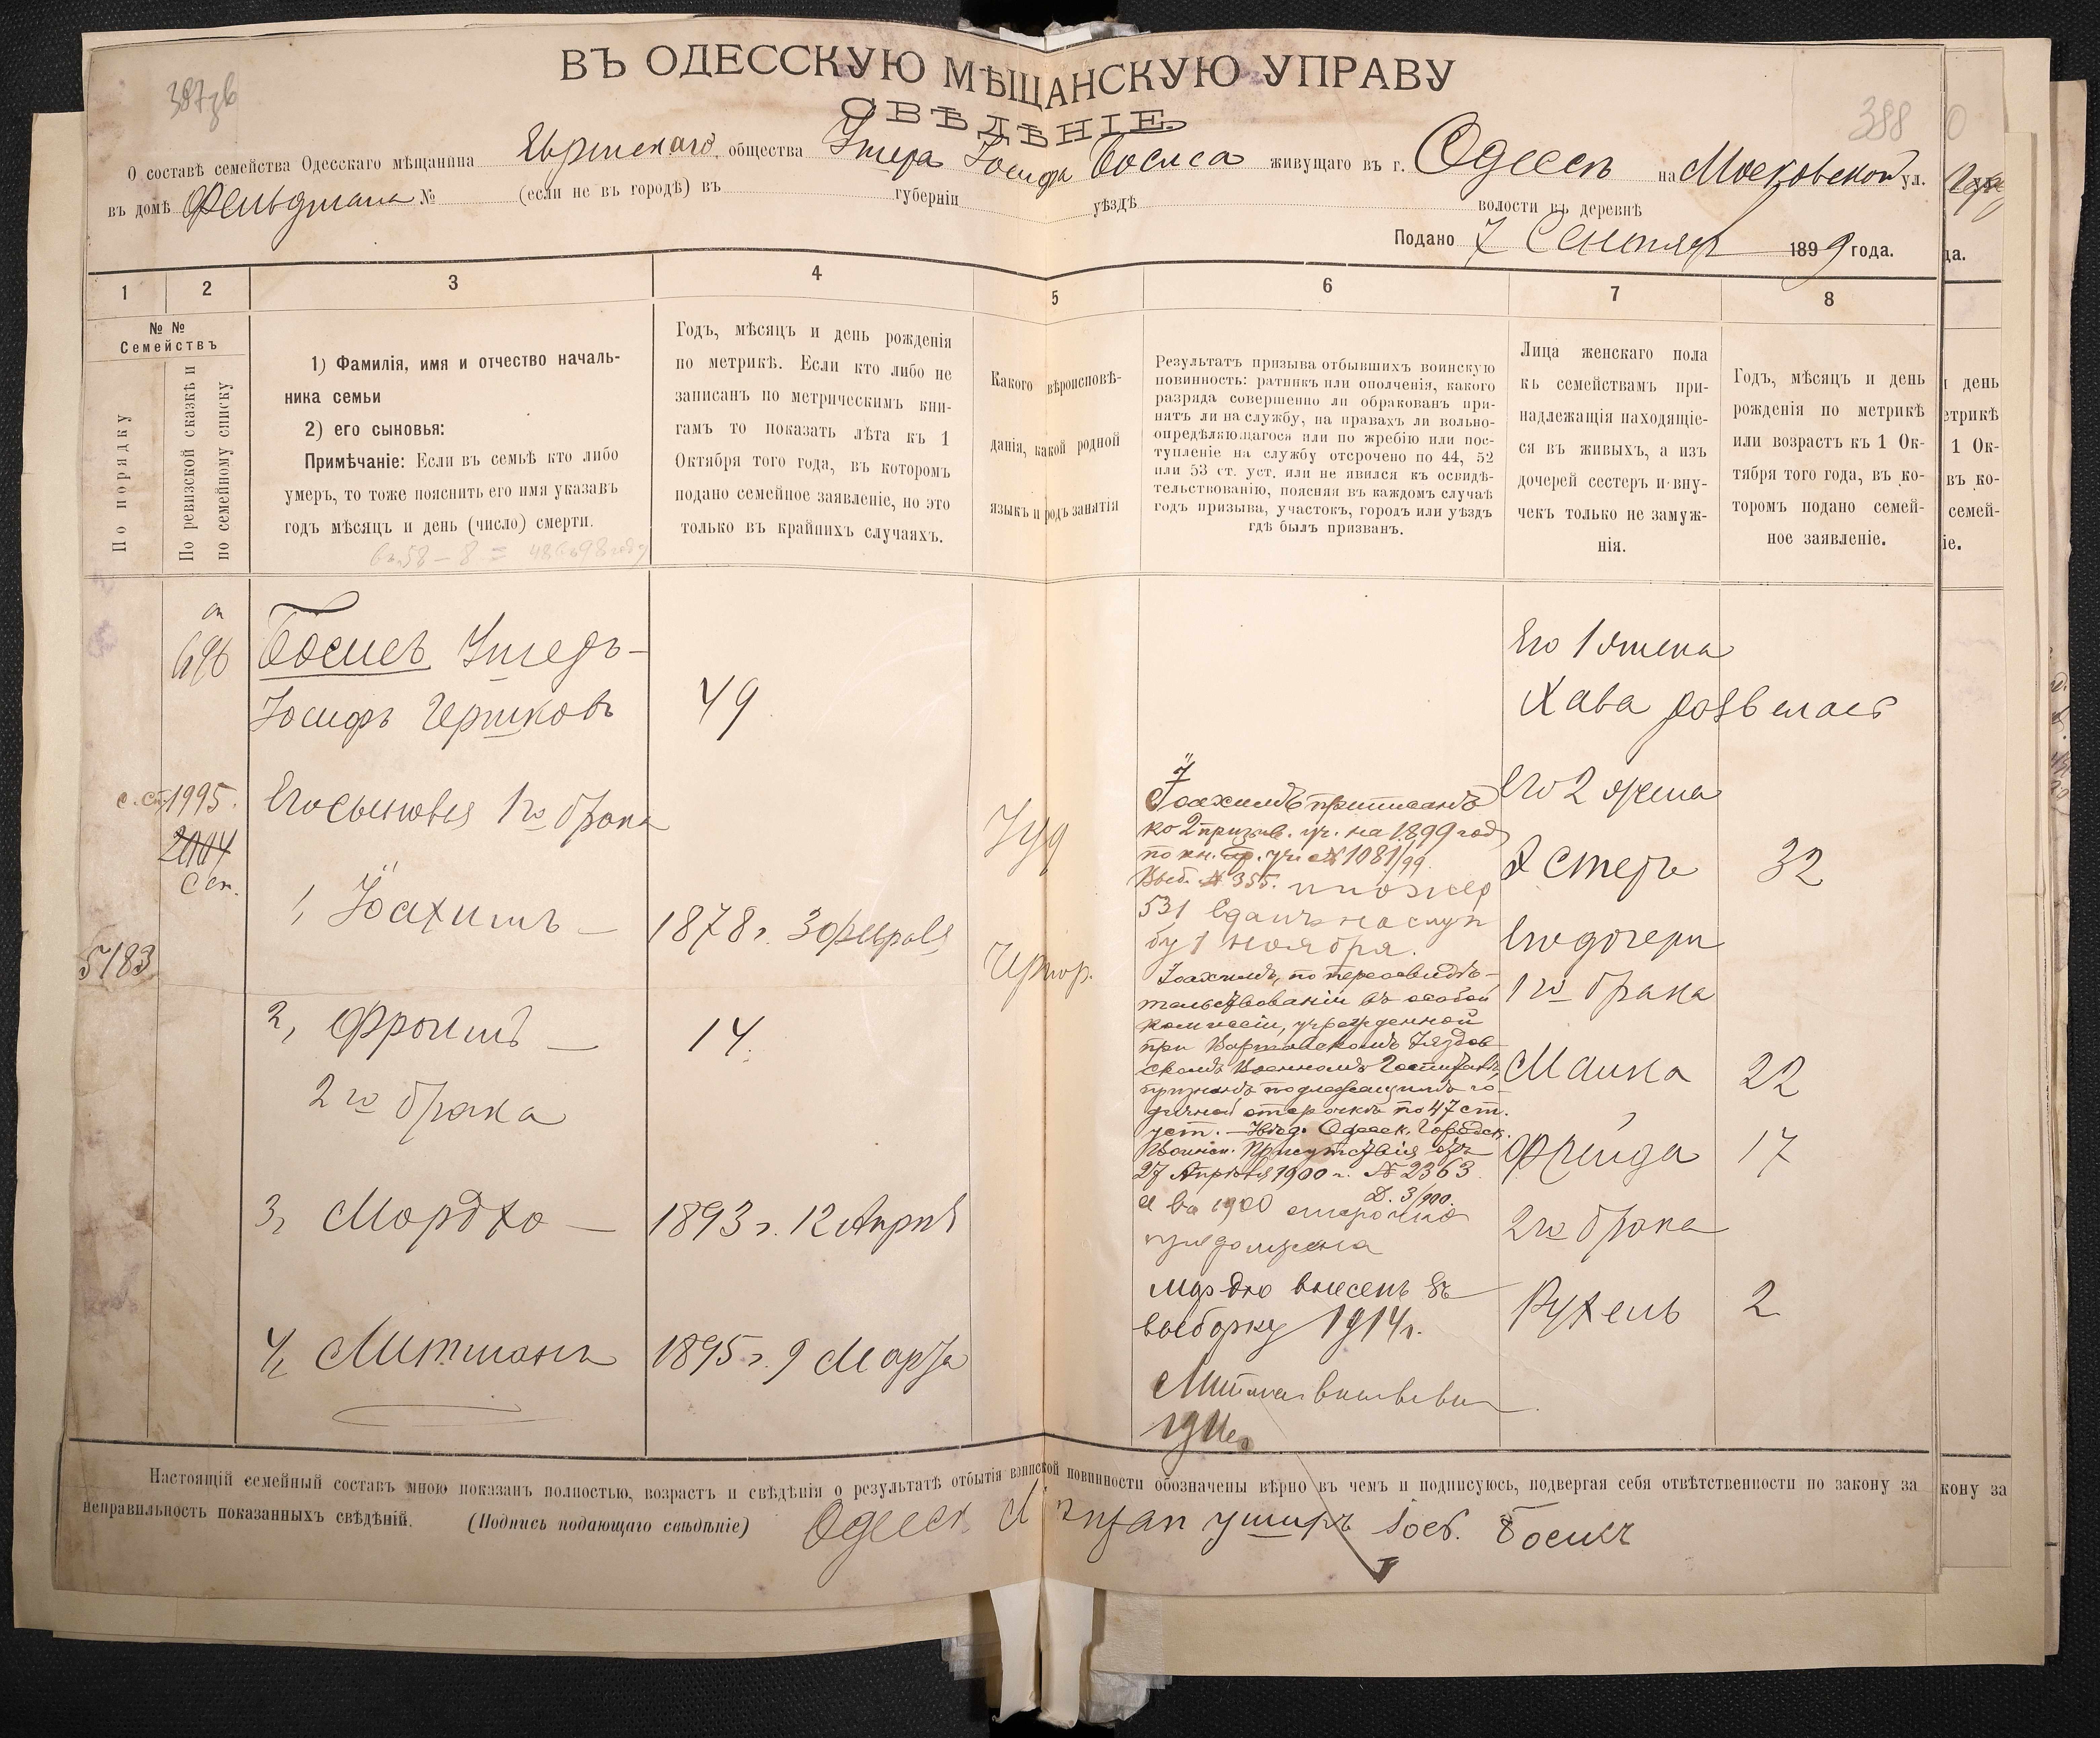 ВЪ ОДЕССКУЮ МѢЩАНСКУЮ УПРАВУ
СВѢДѢНІЕ.
388
О составѣ семейства Одесскаго мѣщанина Еврейскаго общества Ушера Іосифа Босиса живущаго въ г. Одессѣ на Московской ул.
въ домѣ Фельдмана № (если не въ городѣ) въ губерніи уѣздѣ волости въ деревнѣ
Подано 7 Сентября 1899 года.
1 2 3 4 5 6 7 8
№ №
Семействъ
По порядку
По ревизской сказкѣ и
по семейному списку
1) Фамилія, имя и отчество началь-
ника семьи
2) его сыновья:
Примѣчаніе: Если въ семьѣ кто либо
умеръ, то тоже пояснить его имя указавъ
годъ мѣсяцъ и день (число) смерти.
Годъ, мѣсяцъ и день рожденія
по метрикѣ. Если кто либо не
записанъ по метрическимъ кни-
гамъ то показать лѣта къ 1
Октября того года, въ которомъ
подано семейное заявленіе, но это
только въ крайнихъ случаяхъ.
Какого вѣроисповѣ-
данія, какой родной
языкъ и родъ занятія
Результатъ призыва отбывшихъ воинскую
повинность: ратникъ или ополченія, какого
разряда совершенно ли обракованъ при-
нятъ ли на службу, на правахъ ли вольно-
опредѣляющагося или по жребію или пос-
тупленіе на службу отсрочено по 44, 52
или 53 ст. уст. или не явился къ освидѣ-
тельствованію, поясняя въ каждомъ случаѣ
годъ призыва, участокъ, городъ или уѣздъ
гдѣ былъ призванъ.
Лица женскаго пола
къ семействамъ при-
надлежащія находящіе-
ся въ живыхъ, а изъ
дочерей сестеръ и вну-
чекъ только не замуж-
нія.
Годъ, мѣсяцъ и день
рожденія по метрикѣ
или возрастъ къ 1 Ок-
тября того года, въ ко-
торомъ подано семей-
ное заявленіе.
696
Босисъ Ушеръ-
Іосифъ Гершковъ
49
с.сп. 1995.
2004
С сп.
5783
Его сыновья 1го брака
1, Іоахимъ — 1878 г. 3 февраля
2, Фроимъ — 14
2го брака
3, Мордхо — 1893 г. 12 Апрѣля
4, Митманъ 1895 г. 9 Марта
Іуд
Чернор.
Іоахимъ приписанъ
ко 2 призыв. уч. на 1899 год
по кн. пр. уч. № 1081/99.
Выб. № 355.
531 сданъ на служ
бу 1 ноября.
Іоахимъ, по переосвидѣ-
тельствованіи въ особой
комиссіи, учрежденной
при Варшавскомъ Уяздов
скомъ Военномъ Госпиталѣ,
признанъ подлежащимъ го-
дичной отсрочкѣ по 47 ст.
уст. — Увѣд. Одесск. Городск.
Воинск. Присутствія отъ
27 Апрѣля 1900 г. № 2363
Д. 3/900.
А въ 1900 отсрочка
продолжена
Мордхо внесенъ въ
выборку 1914 г.
Его 1 жена
Хава развелась
Его 2 жена
Эстеръ 32
Его дочери
1го брака
Маика 22
Фрейда 17
2го брака
Рухель 2
Настоящій семейный составъ мною показанъ полностью, возрастъ и свѣдѣнія о результатѣ отбытія воинской повинности обозначены вѣрно въ чемъ и подписуюсь, подвергая себя отвѣтственности по закону за
неправильность показанныхъ свѣдѣній. (Подпись подающаго свѣдѣніе) Одесск Мещан Уширъ Іос. Босисъ
да.
и день
етрикѣ
1 Ок-
въ ко-
семей-
іе.
кону за